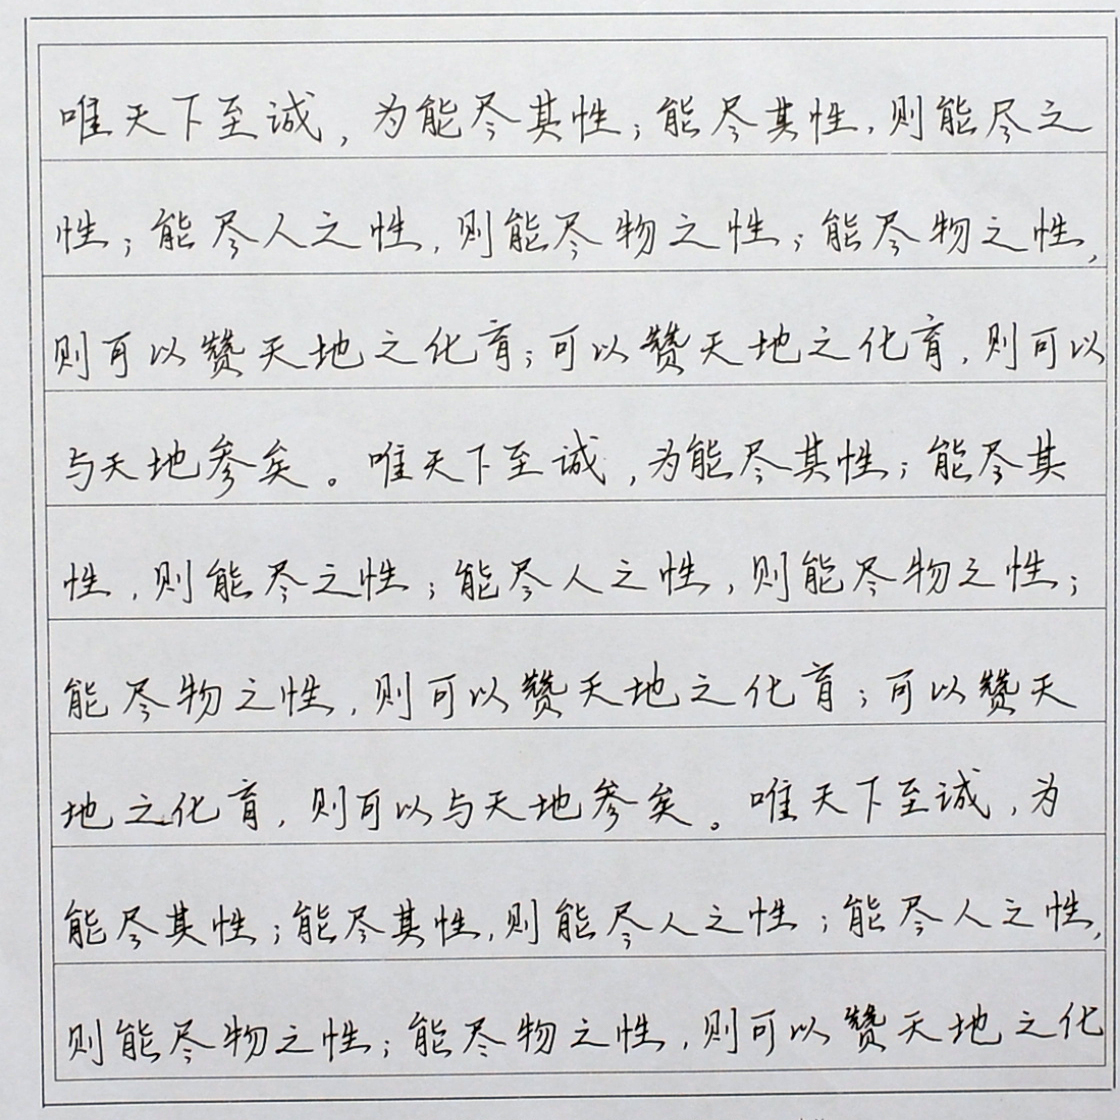 唯天下至诚，为能尽其性；能尽其性，则能尽之
性；能尽人之性，则能尽物之性；能尽物之性，
则可以赞天地之化育；可以赞天地之化育，则可以
与天地参矣。唯天下至诚，为能尽其性；能尽其
性，则能尽之性；能尽人之性，则能尽物之性；
能尽物之性，则可以赞天地之化育；可以赞天
地之化育，则可以与天地参矣。唯天下至诚，为
能尽其性；能尽其性，则能尽人之性；能尽人之性，
则能尽物之性；能尽物之性，则可以赞天地之化